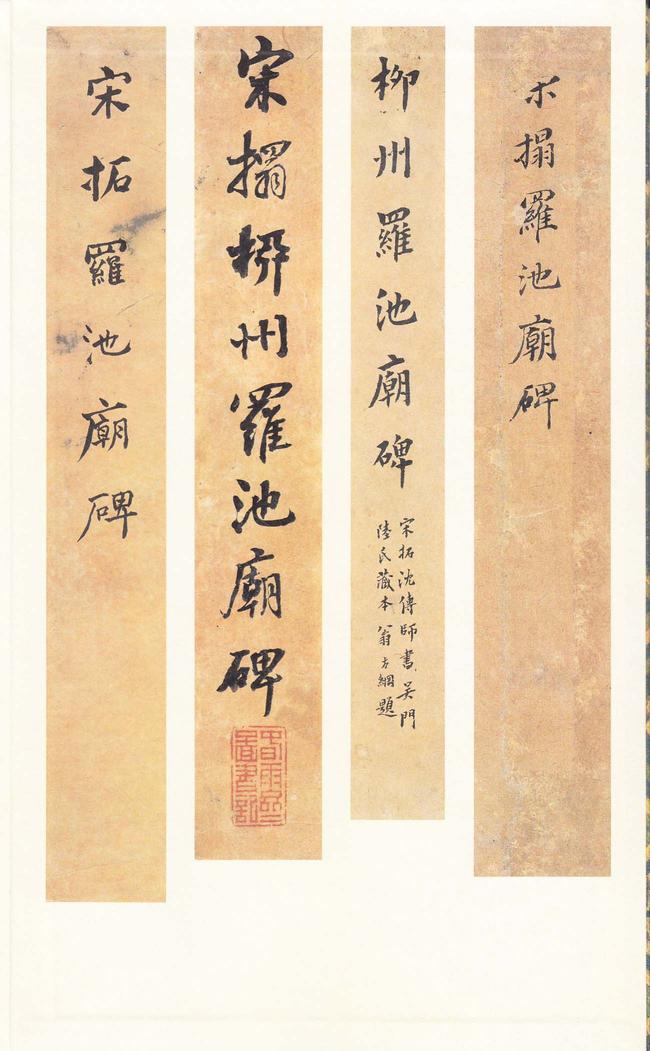 宋搨羅池廟碑
柳州羅池廟碑
宋拓沈傳師書吳門
陸氏藏本翁方綱題
宋搨柳州羅池廟碑
宋拓羅池廟碑